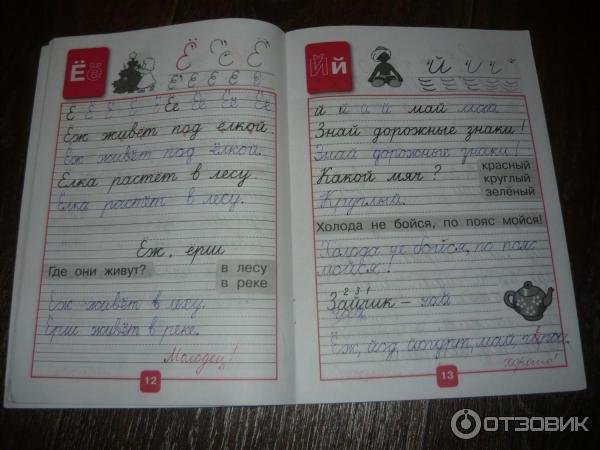 Ёё
Ё Ё Ё
Ё Ё Ё Ё Ё
Ё Ё Ё Ё Ё Ёё Ёё Ёё Ёё
Ёж живёт под ёлкой.
Ёж живёт под ёлкой.
Ёлка растёт в лесу.
Ёлка растёт в лесу.
Ёж, ерши
Где они живут?
в лесу
в реке
Ёж живёт в лесу.
Ерши живёт в реке.
Молодец!
12
Йй
й й й май
Знай дорожные знаки!
Знай дорожные знаки!
Какой мяч?
красный
круглый
зелёный
Круглый.
Холода не бойся, по пояс мойся!
Холода не бойся, по пояс
мойся!
2 3 1
Зайчик – чай
чай,
Ёж, йод, йогурт, май,
Хорошо!
13
ОТЗОВИК